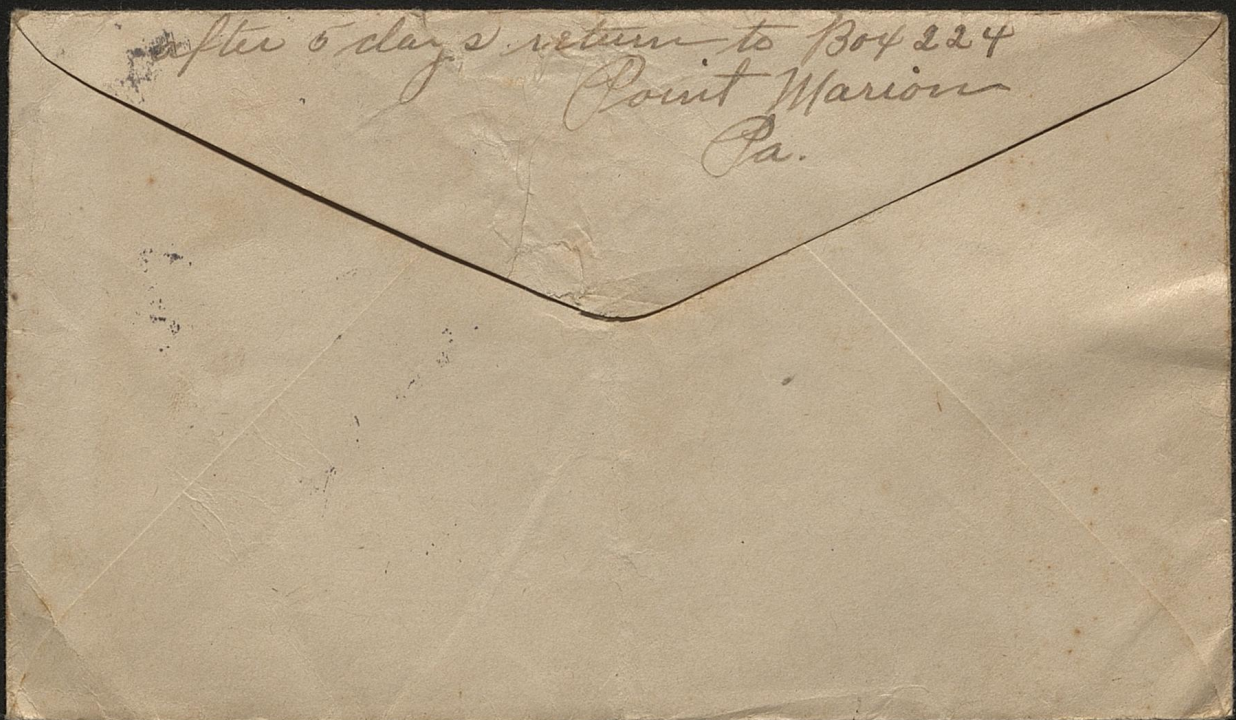 after 5 days return to Box 224
Point Marion
Pa.